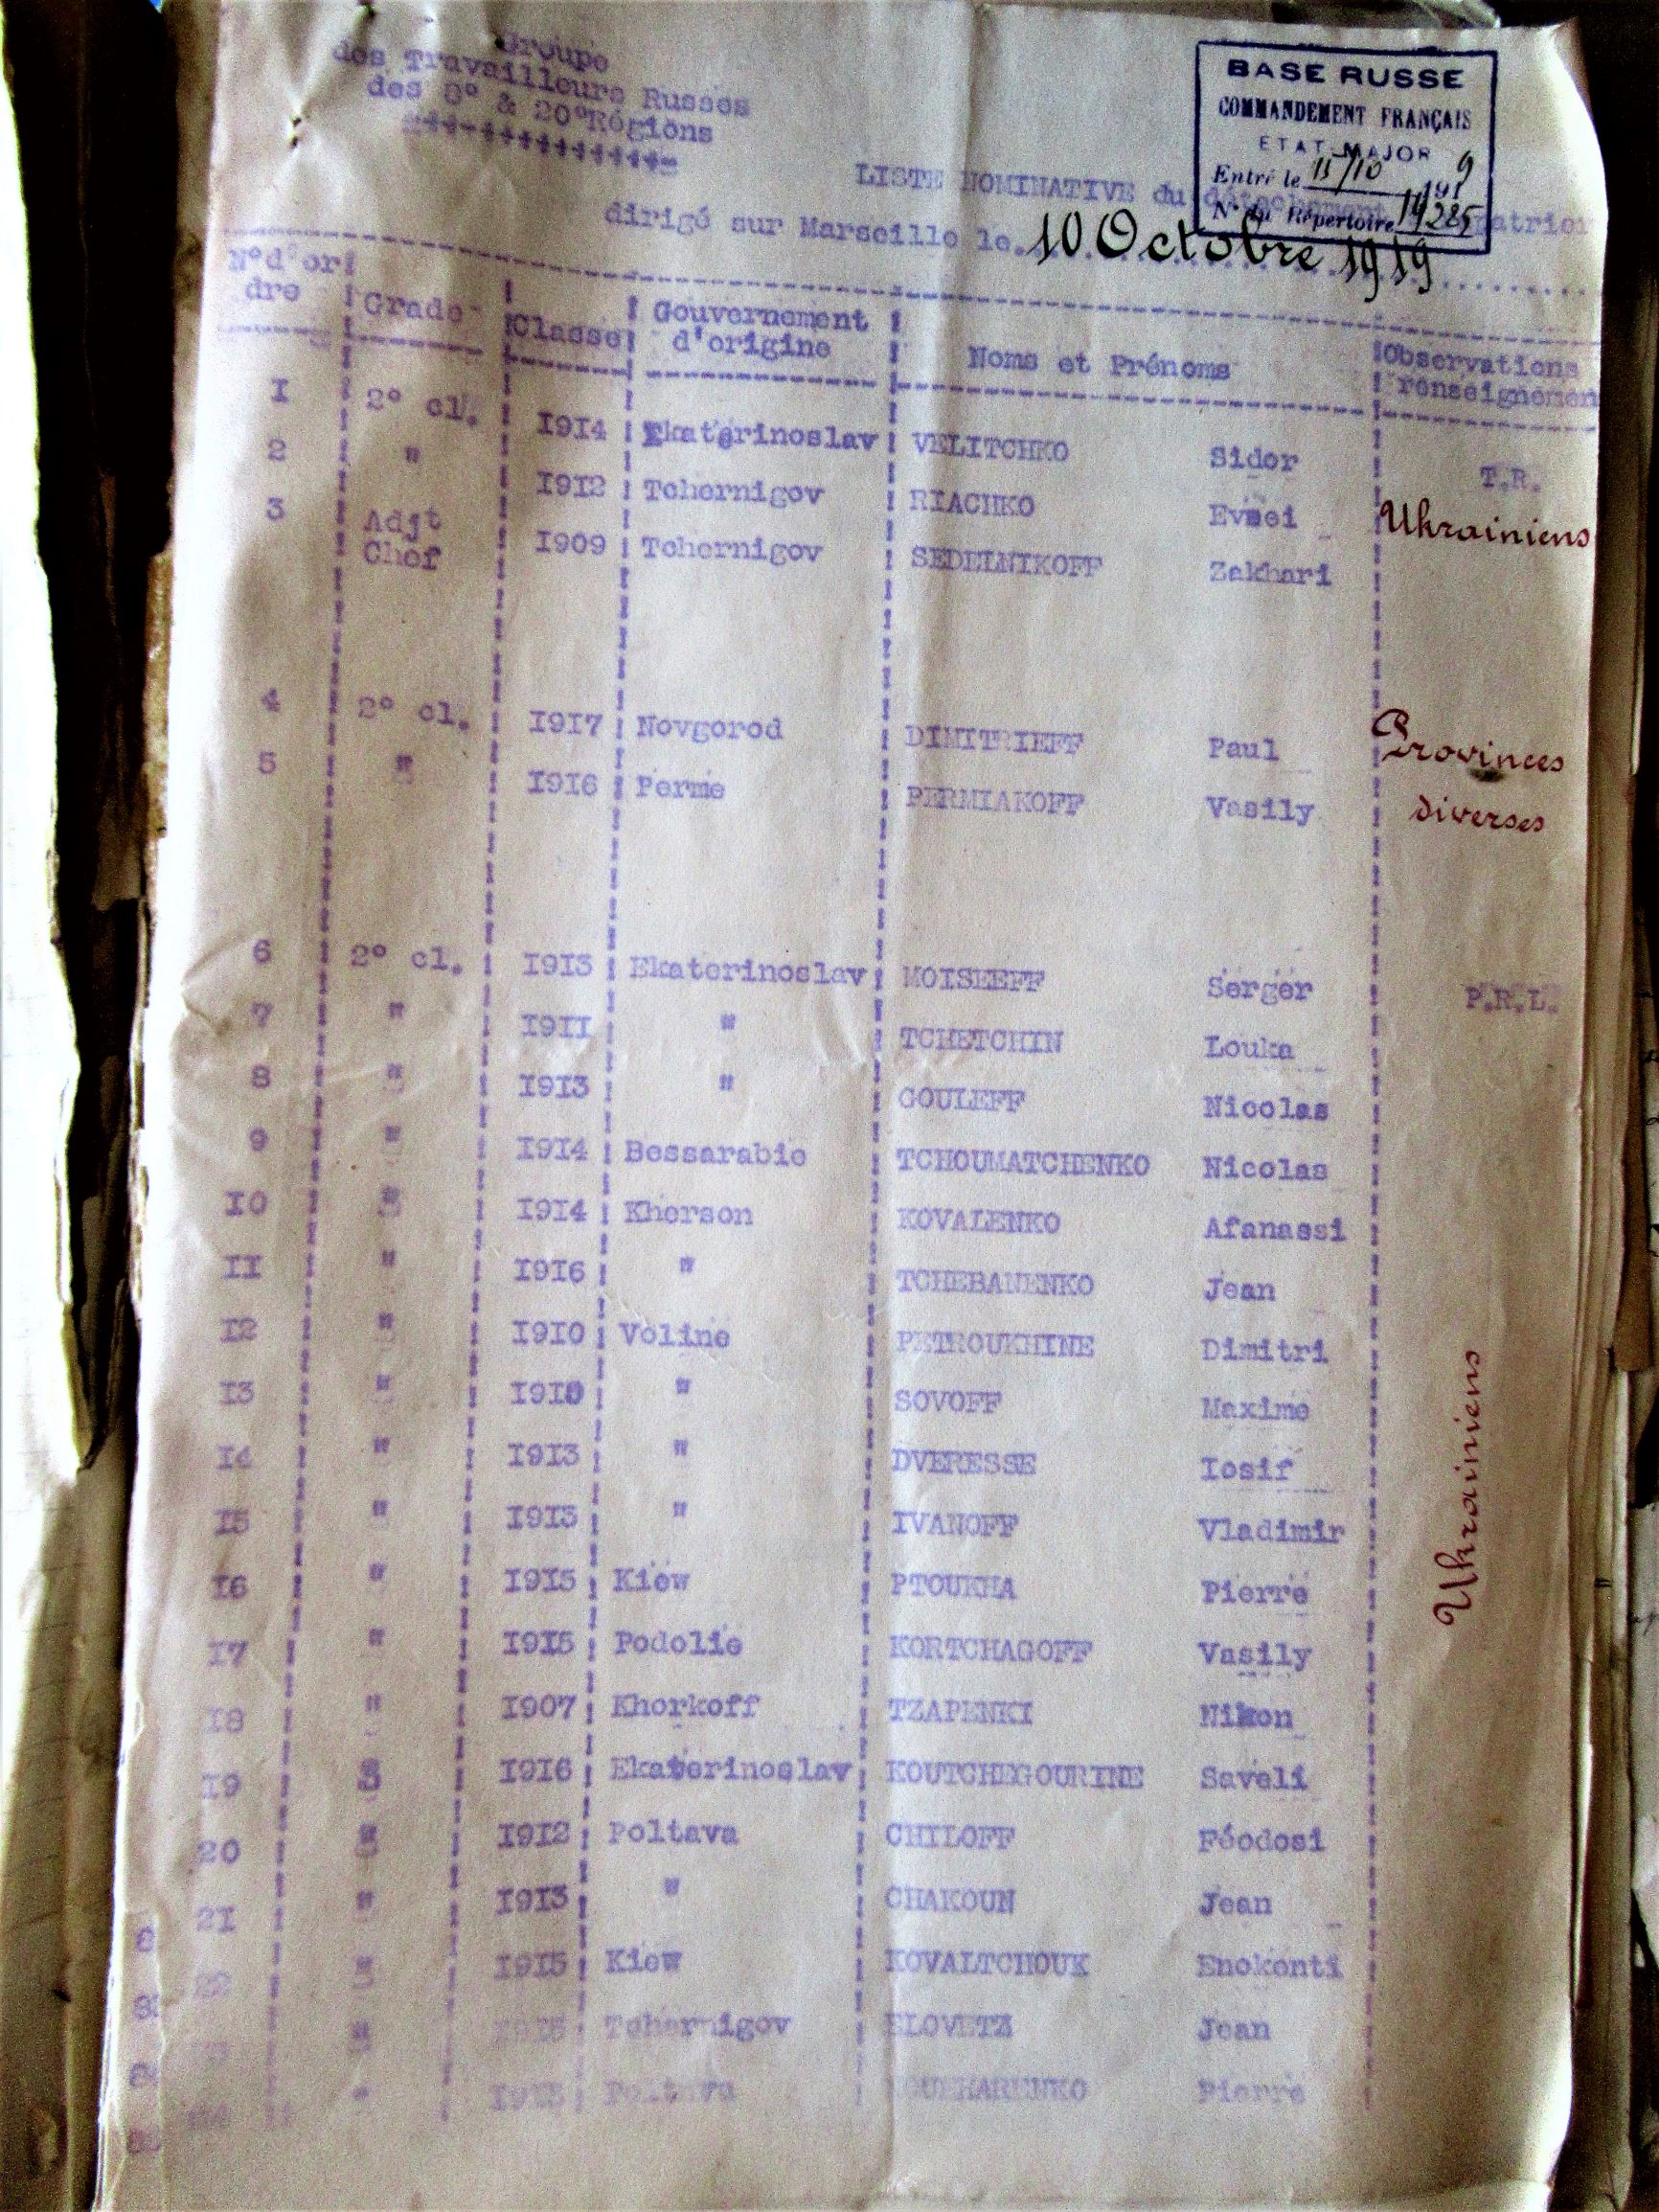 Groupe
des Travailleurs Russes
des 8° & 20°Régions
BASE RUSSE
COMMANDEMENT FRANÇAIS
ETAT-MAJOR
Entré le 11/10 1919
N° du Répertoire 14285
LISTE NOMINATIVE du
dirigé sur Marseille le 10 Octobre 1919
N°d'or dre Grade Classe Gouvernement d'origine Noms et Prénoms Observations renseignemen
I 2° cl. I9I4 Ekaterinoslav VELITCHKO Sidor T.R.
2 " I9I2 Tchernigov RIACHKO Evsei Ukrainiens
3 Adjt Chef I909 Tchernigov SEDELNIKOFF Zakhari
4 2° cl. I9I7 Novgorod DIMITRIEFF Paul Provinces
5 " I9I6 Perme PERMIAKOFF Vasily diverses
6 2° cl. I9I3 Ekaterinoslav MOISEEFF Serger P.R.L.
7 " I9II " TCHETCHIN Louka
8 " I9I3 " GOULEFF Nicolas
9 " I9I4 Bessarabie TCHOUMATCHENKO Nicolas
I0 " I9I4 Kherson KOVALENKO Afanassi
II " I9I6 " TCHEBANENKO Jean
I2 " I9I0 Voline PETROUKHINE Dimitri
I3 " I9I0 " SOVOFF Maxime
I4 " I9I3 " DVERESSE Iosif
I5 " I9I3 " IVANOFF Vladimir
I6 " I9I5 Kiew PTOUKHA Pierre
I7 " I9I5 Podolie KORTCHAGOFF Vasily
I8 " I907 Khorkoff TZAPENKI Nikon
I9 " I9I6 Ekaterinoslav KOUTCHEGOURINE Saveli
20 " I9I2 Poltava CHILOFF Féodosi
2I " I9I3 " CHAKOUN Jean
22 " I9I5 Kiew KOVALTCHOUK Enokenti
" Tchernigov ELOVETZ Jean
" Poltava Pierre
Ukrainiens